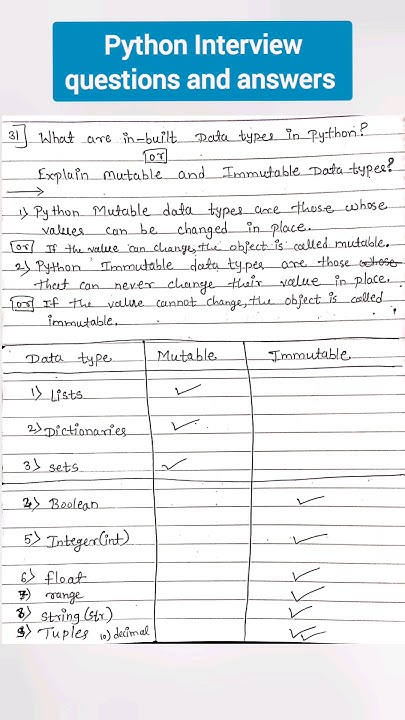 Python Interview
questions and answers
31] What are in-built Data types in Python?
[or]
Explain mutable and Immutable Data types?
→
1) Python Mutable data types are those whose
values can be changed in place.
[or] If the value can change, the object is called mutable.
2) Python Immutable data types are those whose
that can never change their value in place.
[or] If the value cannot change, the object is called
immutable.
Data type Mutable Immutable
1) Lists ✓
2) Dictionaries ✓
3) sets ✓
4) Boolean ✓
5) Integer(int) ✓
6) float ✓
7) range ✓
8) string (str) ✓
9) Tuples 10) decimal ✓✓